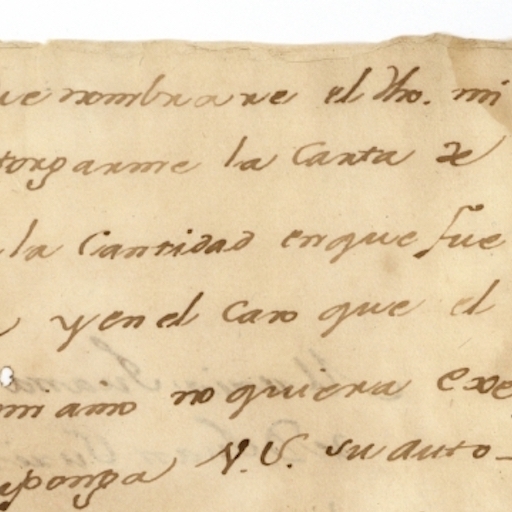 ue nombrare el dho. mi
torgarme la Carta de
la Cantidad enque fue
y en el Caso que el
mi amo no quiera exe
nponga V.S. su auto-